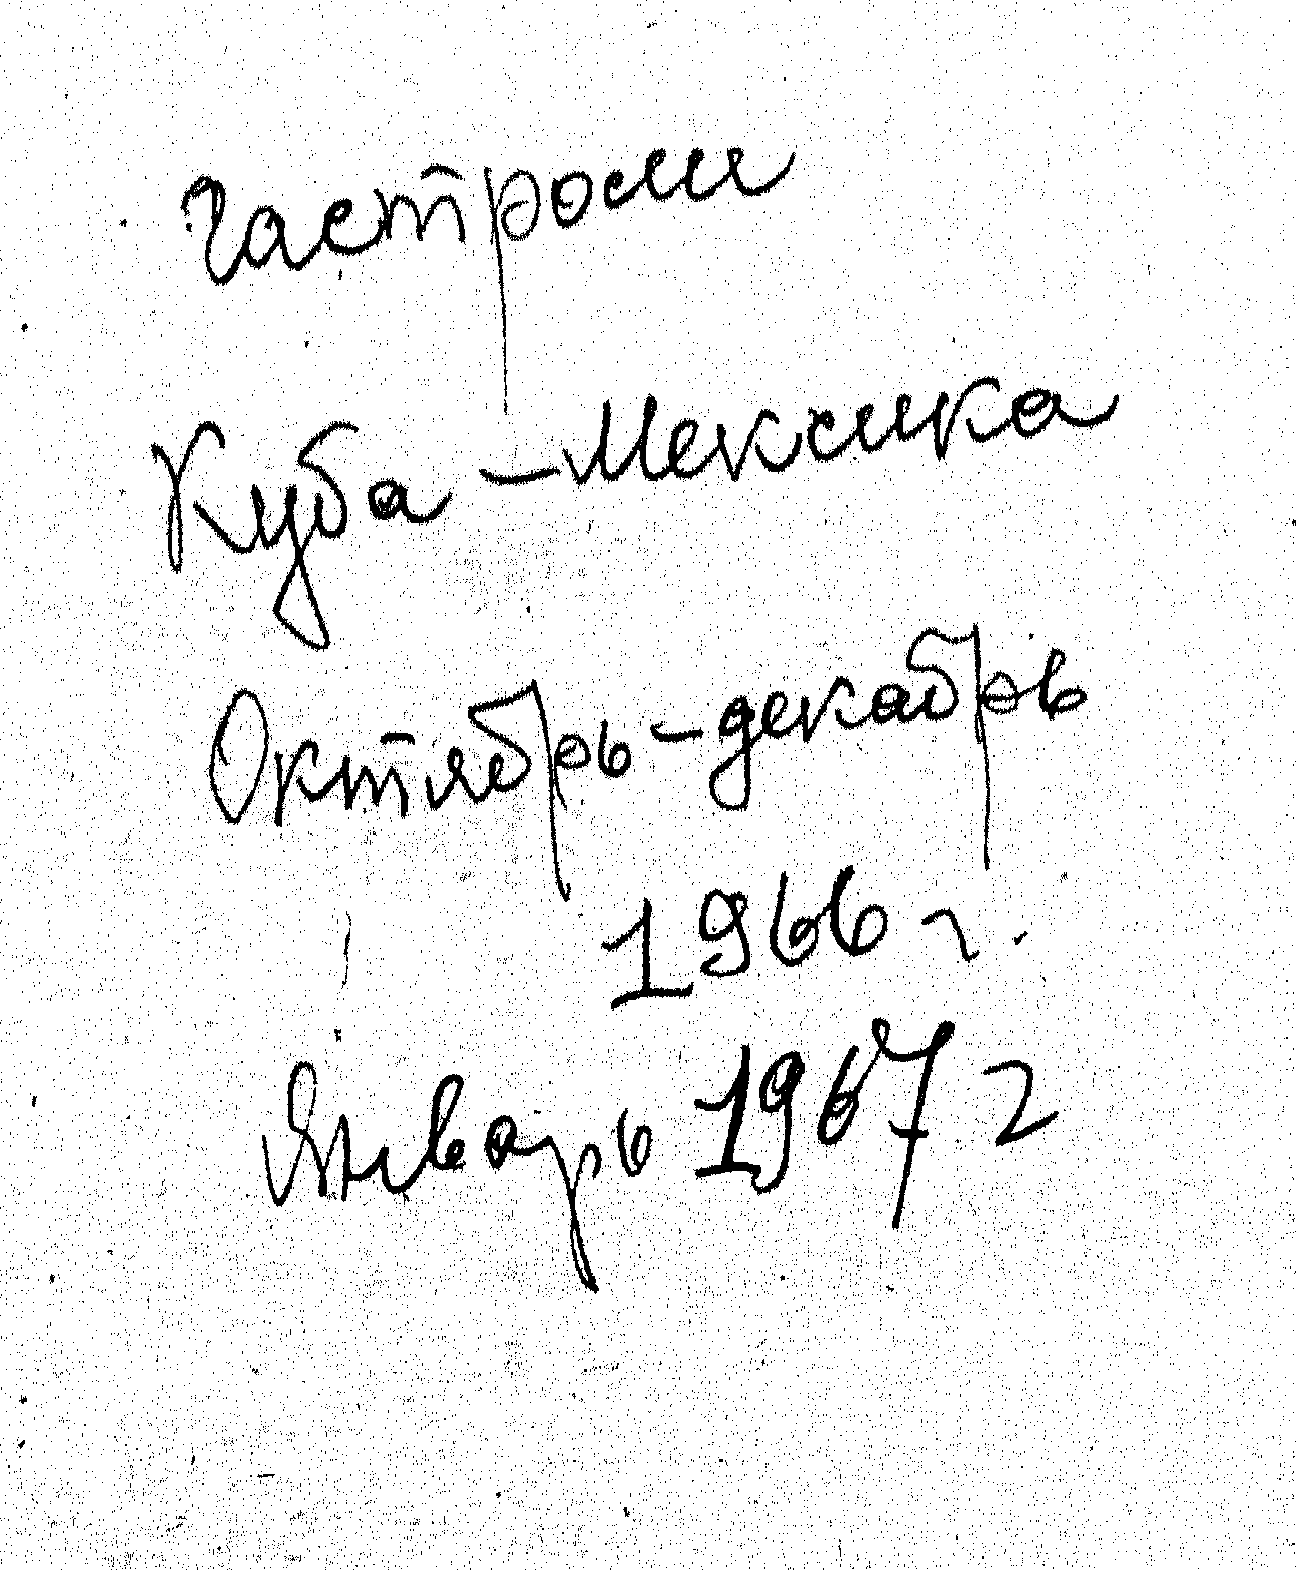 Гастроли
Куба - Мексика
Октябрь - декабрь
1966 г.
Январь 1967 г